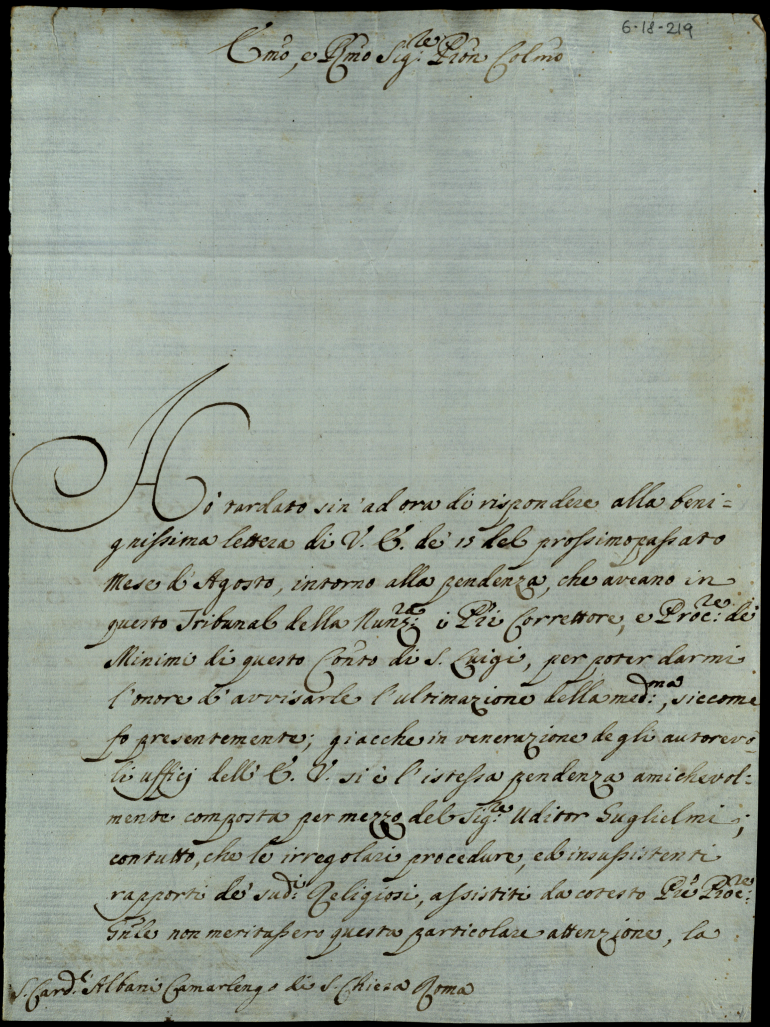 6-18-219
Emo, e Rmo Sig:re Pron Colmo
Hò tardato sin' ad ora di rispondere alla beni=
gnissima lettera di V. E. de' 15 del prossimopassato
Mese d' Agosto, intorno alla pendenza, che aveano in
questo Tribunal della Nunz:ra i Pri Correttore, e Proc:re de'
Minimi di questo Conto di S. Luigi, per poter darmi
l'onore d' avvisarle l'ultimazione della med:ma, siccome
fo presentemente; giacche in venerazione degli autorevo=
li ufficj dell' E. V. si è l'istessa pendenza amichevol=
mente composta per mezzo del Sig:re Uditor Guglielmi;
contutto, che le irregolari procedure, ed insussistenti
rapporti de' sud:i Religiosi, assistiti da cotesto Pre Proc:re
Gnle non meritassero questa particolare attenzione, la
S. Card:l Albani Camarlengo di S. Chiesa Roma